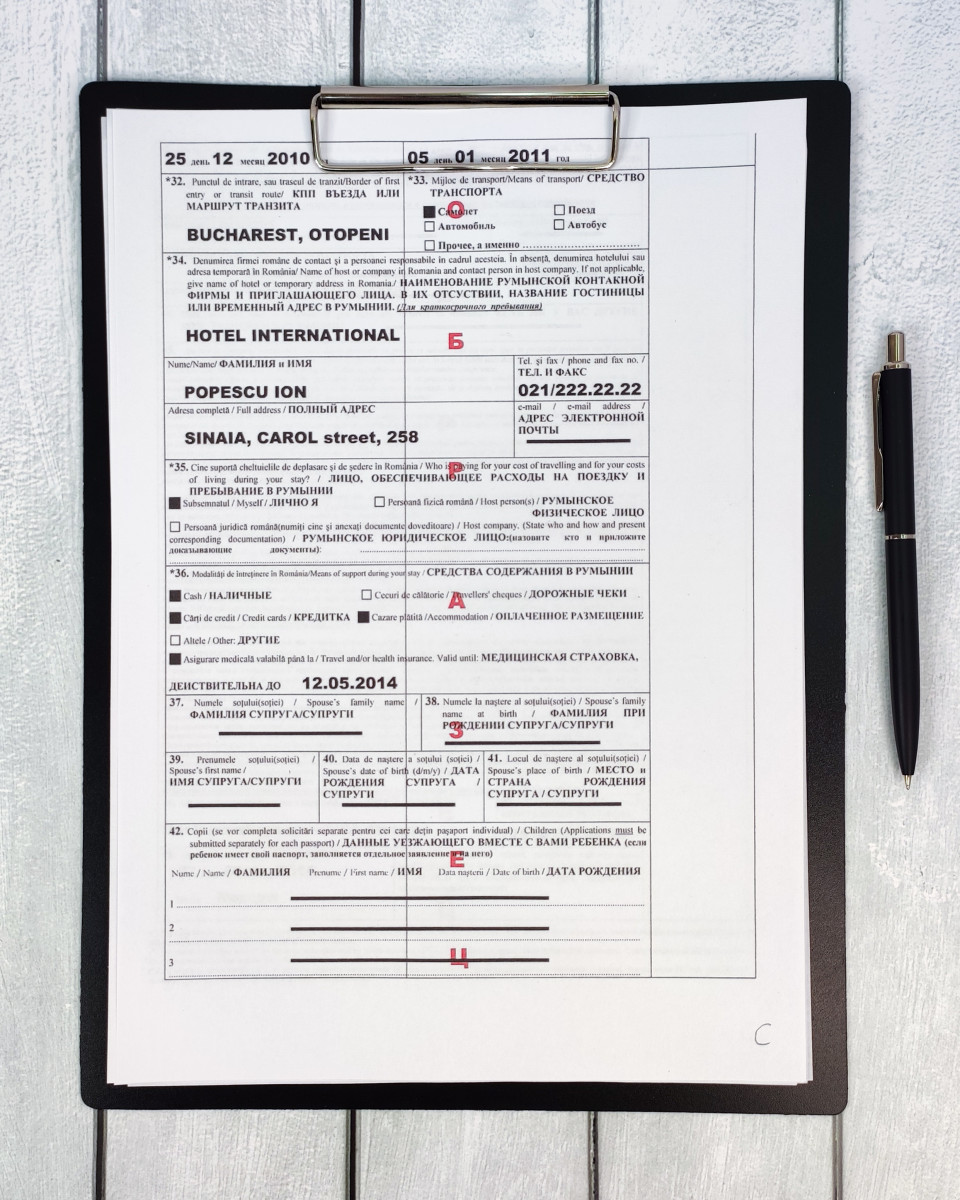 25 день 12 месяц 2010
05 день 01 месяц 2011 год
*32. Punctul de intrare, sau trascul de tranzit/Border of first
entry or transit route/ КПП ВЪЕЗДА ИЛИ
МАРШРУТ ТРАНЗИТА
BUCHAREST, OTOPENI
*33. Mijloc de transport/Means of transport/ СРЕДСТВО
ТРАНСПОРТА
Самолет
Поезд
Автомобиль
Автобус
Прочее, а именно
О
*34. Denumirea firmei române de contact şi a persoanei responsabile în cadrul acesteia. În absenţă, denumirea hotelului sau
adresa temporară în România/ Name of host or company in Romania and contact person in host company. If not applicable,
give name of hotel or temporary address in Romania./ НАИМЕНОВАНИЕ РУМЫНСКОЙ КОНТАКНОЙ
ФИРМЫ И ПРИГЛАШАЮЩЕГО ЛИЦА. В ИХ ОТСУСТВИИ, НАЗВАНИЕ ГОСТИНИЦЫ
ИЛИ ВРЕМЕННЫЙ АДРЕС В РУМЫНИИ. (Для краткосрочного пребывания)
HOTEL INTERNATIONAL
Б
Nume/Name/ ФАМИЛИЯ и ИМЯ
POPESCU ION
Tel. şi fax / phone and fax no. /
ТЕЛ. И ФАКС
021/222.22.22
Adresa completă / Full address / ПОЛНЫЙ АДРЕС
SINAIA, CAROL street, 258
e-mail / e-mail address /
АДРЕС ЭЛЕКТРОННОЙ
ПОЧТЫ
*35. Cine suportă cheltuielile de deplasare şi de şedere în România / Who is paying for your cost of travelling and for your costs
of living during your stay? / ЛИЦО, ОБЕСПЕЧИВАЮЩЕЕ РАСХОДЫ НА ПОЕЗДКУ И
ПРЕБЫВАНИЕ В РУМЫНИИ
Р
Subsemnatul / Myself / ЛИЧНО Я
Persoană fizică română / Host person(s) / РУМЫНСКОЕ
ФИЗИЧЕСКОЕ ЛИЦО
Persoană juridică română(numiţi cine şi anexaţi documente doveditoare) / Host company. (State who and how and present
corresponding documentation) / РУМЫНСКОЕ ЮРИДИЧЕСКОЕ ЛИЦО:(назовите кто и приложите
доказывающие документы):
*36. Modalităţi de întreţinere în România/Means of support during your stay / СРЕДСТВА СОДЕРЖАНИЯ В РУМЫНИИ
Cash / НАЛИЧНЫЕ
Cecuri de călătorie / Travellers' cheques / ДОРОЖНЫЕ ЧЕКИ
А
Cărţi de credit / Credit cards / КРЕДИТКА
Cazare plătită /Accommodation / ОПЛАЧЕННОЕ РАЗМЕЩЕНИЕ
Altele / Other: ДРУГИЕ
Asigurare medicală valabilă până la / Travel and/or health insurance. Valid until: МЕДИЦИНСКАЯ СТРАХОВКА,
ДЕЙСТВИТЕЛЬНА ДО 12.05.2014
37. Numele soţului(soţiei) / Spouse's family name /
ФАМИЛИЯ СУПРУГА/СУПРУГИ
38. Numele la naştere al soţului(soţiei) / Spouse's family
name at birth / ФАМИЛИЯ ПРИ
РОЖДЕНИИ СУПРУГА/СУПРУГИ
З
39. Prenumele soţului(soţiei) /
Spouse's first name /
ИМЯ СУПРУГА/СУПРУГИ
40. Data de naştere a soţului (soţiei) /
Spouse's date of birth (d/m/y) / ДАТА
РОЖДЕНИЯ СУПРУГА /
СУПРУГИ
41. Locul de naştere al soţului(soţiei) /
Spouse's place of birth / МЕСТО и
СТРАНА РОЖДЕНИЯ
СУПРУГА / СУПРУГИ
42. Copii (se vor completa solicitări separate pentru cei care deţin paşaport individual) / Children (Applications must be
submitted separately for each passport) / ДАННЫЕ УЕЗЖАЮЩЕГО ВМЕСТЕ С ВАМИ РЕБЕНКА (если
ребенок имеет свой паспорт, заполняется отдельное заявление на него)
Е
Nume / Name / ФАМИЛИЯ Prenume / First name / ИМЯ Data naşterii / Date of birth / ДАТА РОЖДЕНИЯ
1
2
3
Ц
C